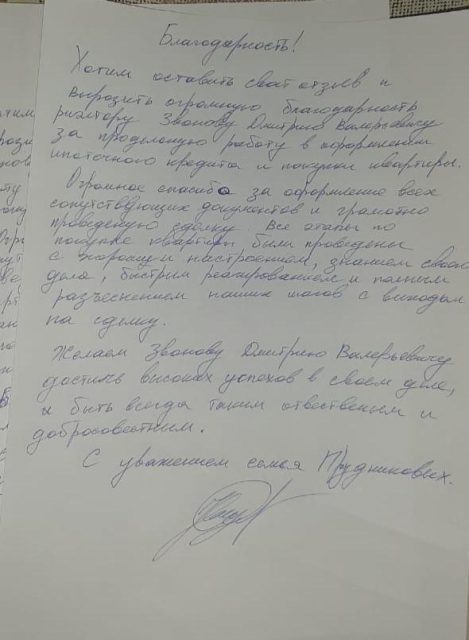 Благодарность!
Хотим оставить свой отзыв и
выразить огромную благодарность
риэлтору Звонову Дмитрию Валерьевичу
за проделанную работу в оформлении
ипотечного кредита и покупки квартиры.
Огромное спасибо за оформление всех
сопутствующих документов и грамотно
проведеную сделку. Все этапы по
покупке квартиры были проведены
с хорошим настроением, знанием своего
дела, быстрым реагированием и полным
разъеснением наших шагов с выходом
на сделку.
Желаем Звонову Дмитрию Валерьевичу
достичь высоких успехов в своем деле,
и быть всегда таким отвественым и
добросовестным.
С уважением семья Прудниковых.